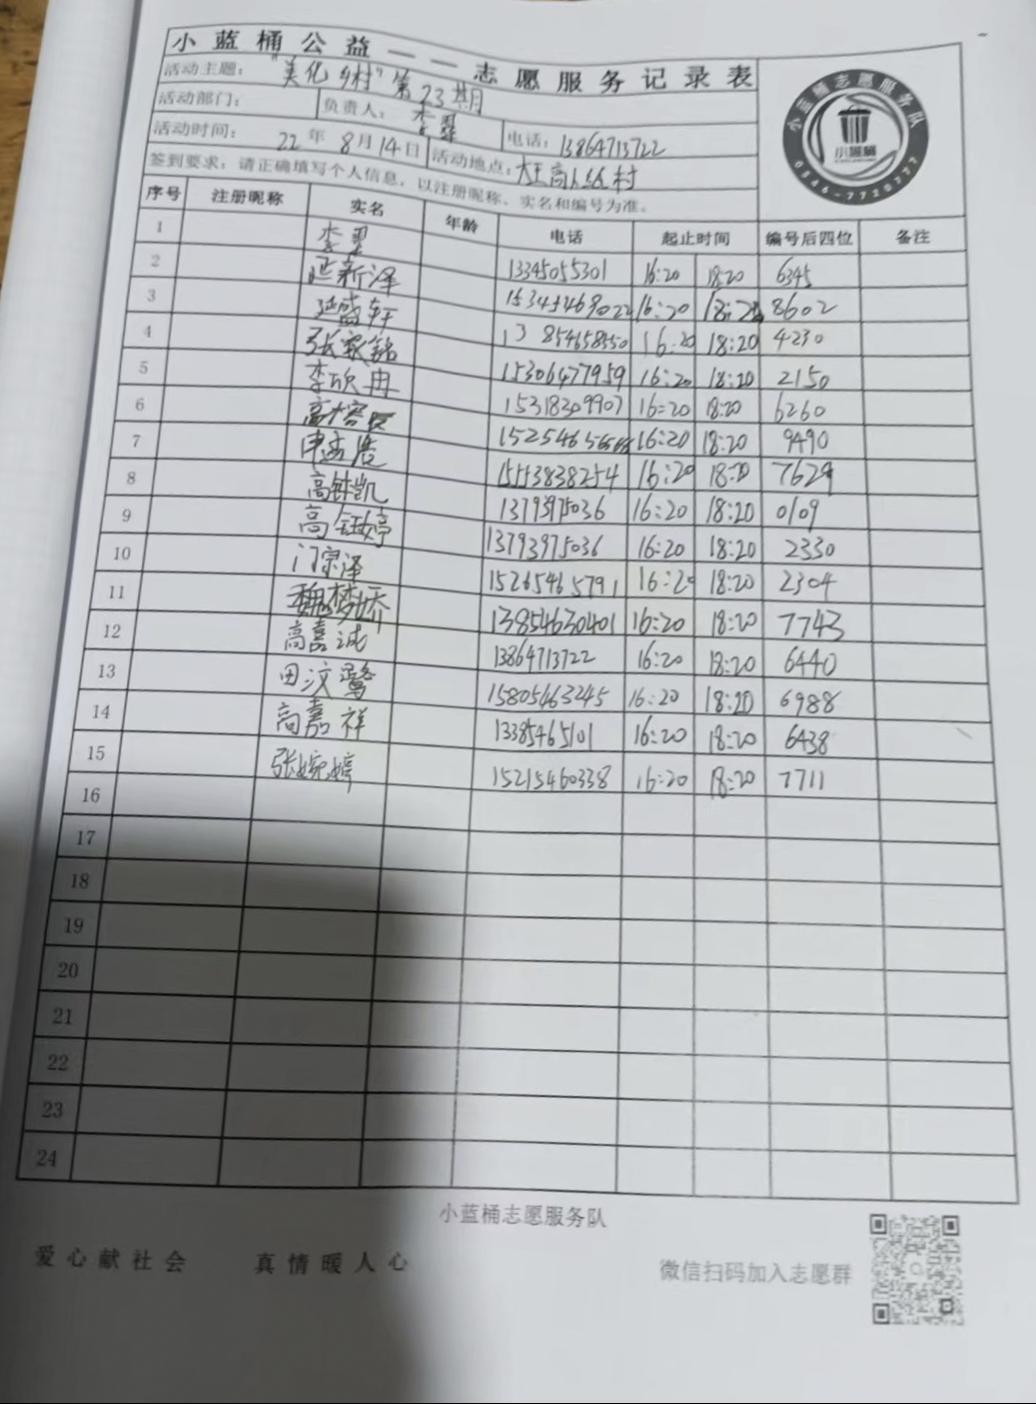 小蓝桶公益——志愿服务记录表
活动主题："美化乡村"第23期
活动部门： 负责人：李
电话：13864713722
活动时间：22年8月14日 活动地点：村
签到要求：请正确填写个人信息，以注册昵称、实名和编号为准。
小蓝桶志愿服务队
小蓝桶
0546-7720777
序号 注册昵称 实名 年龄 电话 起止时间 编号后四位 备注
1 李 13345055301 16:20 18:20 6345
2 延新泽 15345468022 16:20 18:20 8602
3 延盛轩 13854658550 16:20 18:20 4230
4 张家铭 15306477959 16:20 18:20 2150
5 李欣冉 15318309907 16:20 18:20 6260
6 高 16:20 18:20 9490
7 申孟浩 1553838254 16:20 18:20 7629
8 高钟凯 13793975036 16:20 18:20 0109
9 高钰婷 13793975036 16:20 18:20 2330
10 门宗泽 15265465791 16:20 18:20 2304
11 魏梦娇 13854630401 16:20 18:20 7743
12 高嘉诚 13864713722 16:20 18:20 6440
13 田汶鹭 15805463245 16:20 18:20 6988
14 高嘉祥 13385465101 16:20 18:20 6438
15 张婉婷 15215460338 16:20 18:20 7711
16
17
18
19
20
21
22
23
24
小蓝桶志愿服务队
爱心献社会 真情暖人心 微信扫码加入志愿群